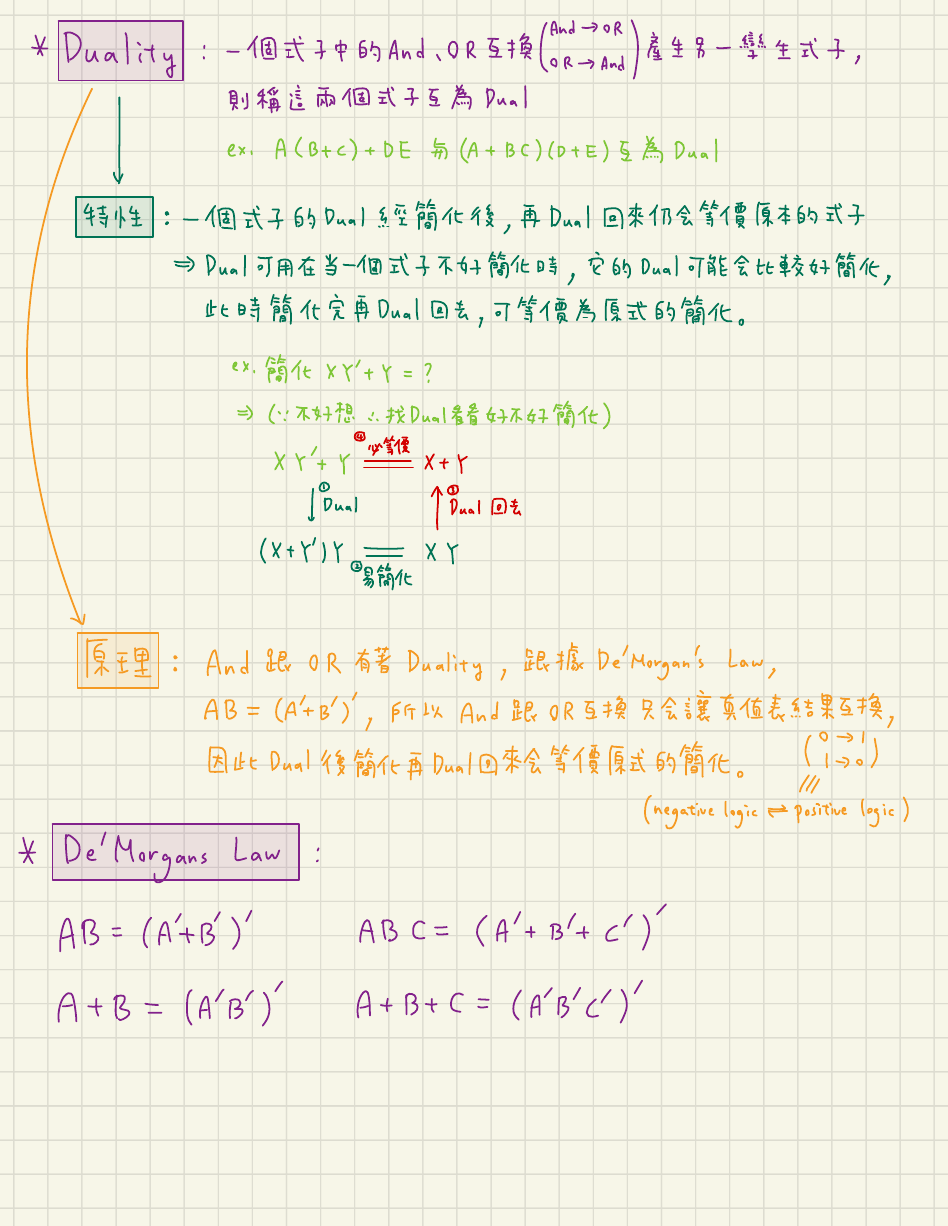 * Duality : 一個式子中的And、OR互換(And→OR OR→And)產生另一孿生式子,
則稱這兩個式子互為 Dual
ex. A(B+C)+DE 與 (A+BC)(D+E) 互為 Dual
特性 : 一個式子的Dual 經簡化後,再Dual回來仍会等價原本的式子
⇒ Dual可用在当一個式子不好簡化時,它的Dual可能会比較好簡化,
此時簡化完再Dual回去,可等價為原式的簡化。
ex. 簡化 XY'+Y = ?
⇒ (∵不好想 ∴找Dual看看好不好簡化)
④必等價
XY'+Y = X+Y
↓①Dual ↑③Dual 回去
(X+Y')Y = XY
②易簡化
原理 : And 跟 OR 有著 Duality , 跟據 De'Morgan's Law,
AB = (A'+B')', 所以 And 跟 OR互換 只会讓真值表結果互換,
(0→1 1→0)
因此 Dual 後簡化再Dual回來会等價原式的簡化。
(negative logic ⇌ positive logic)
* De'Morgans Law :
AB = (A'+B')' ABC = (A'+B'+C')'
A+B = (A'B')' A+B+C = (A'B'C')'